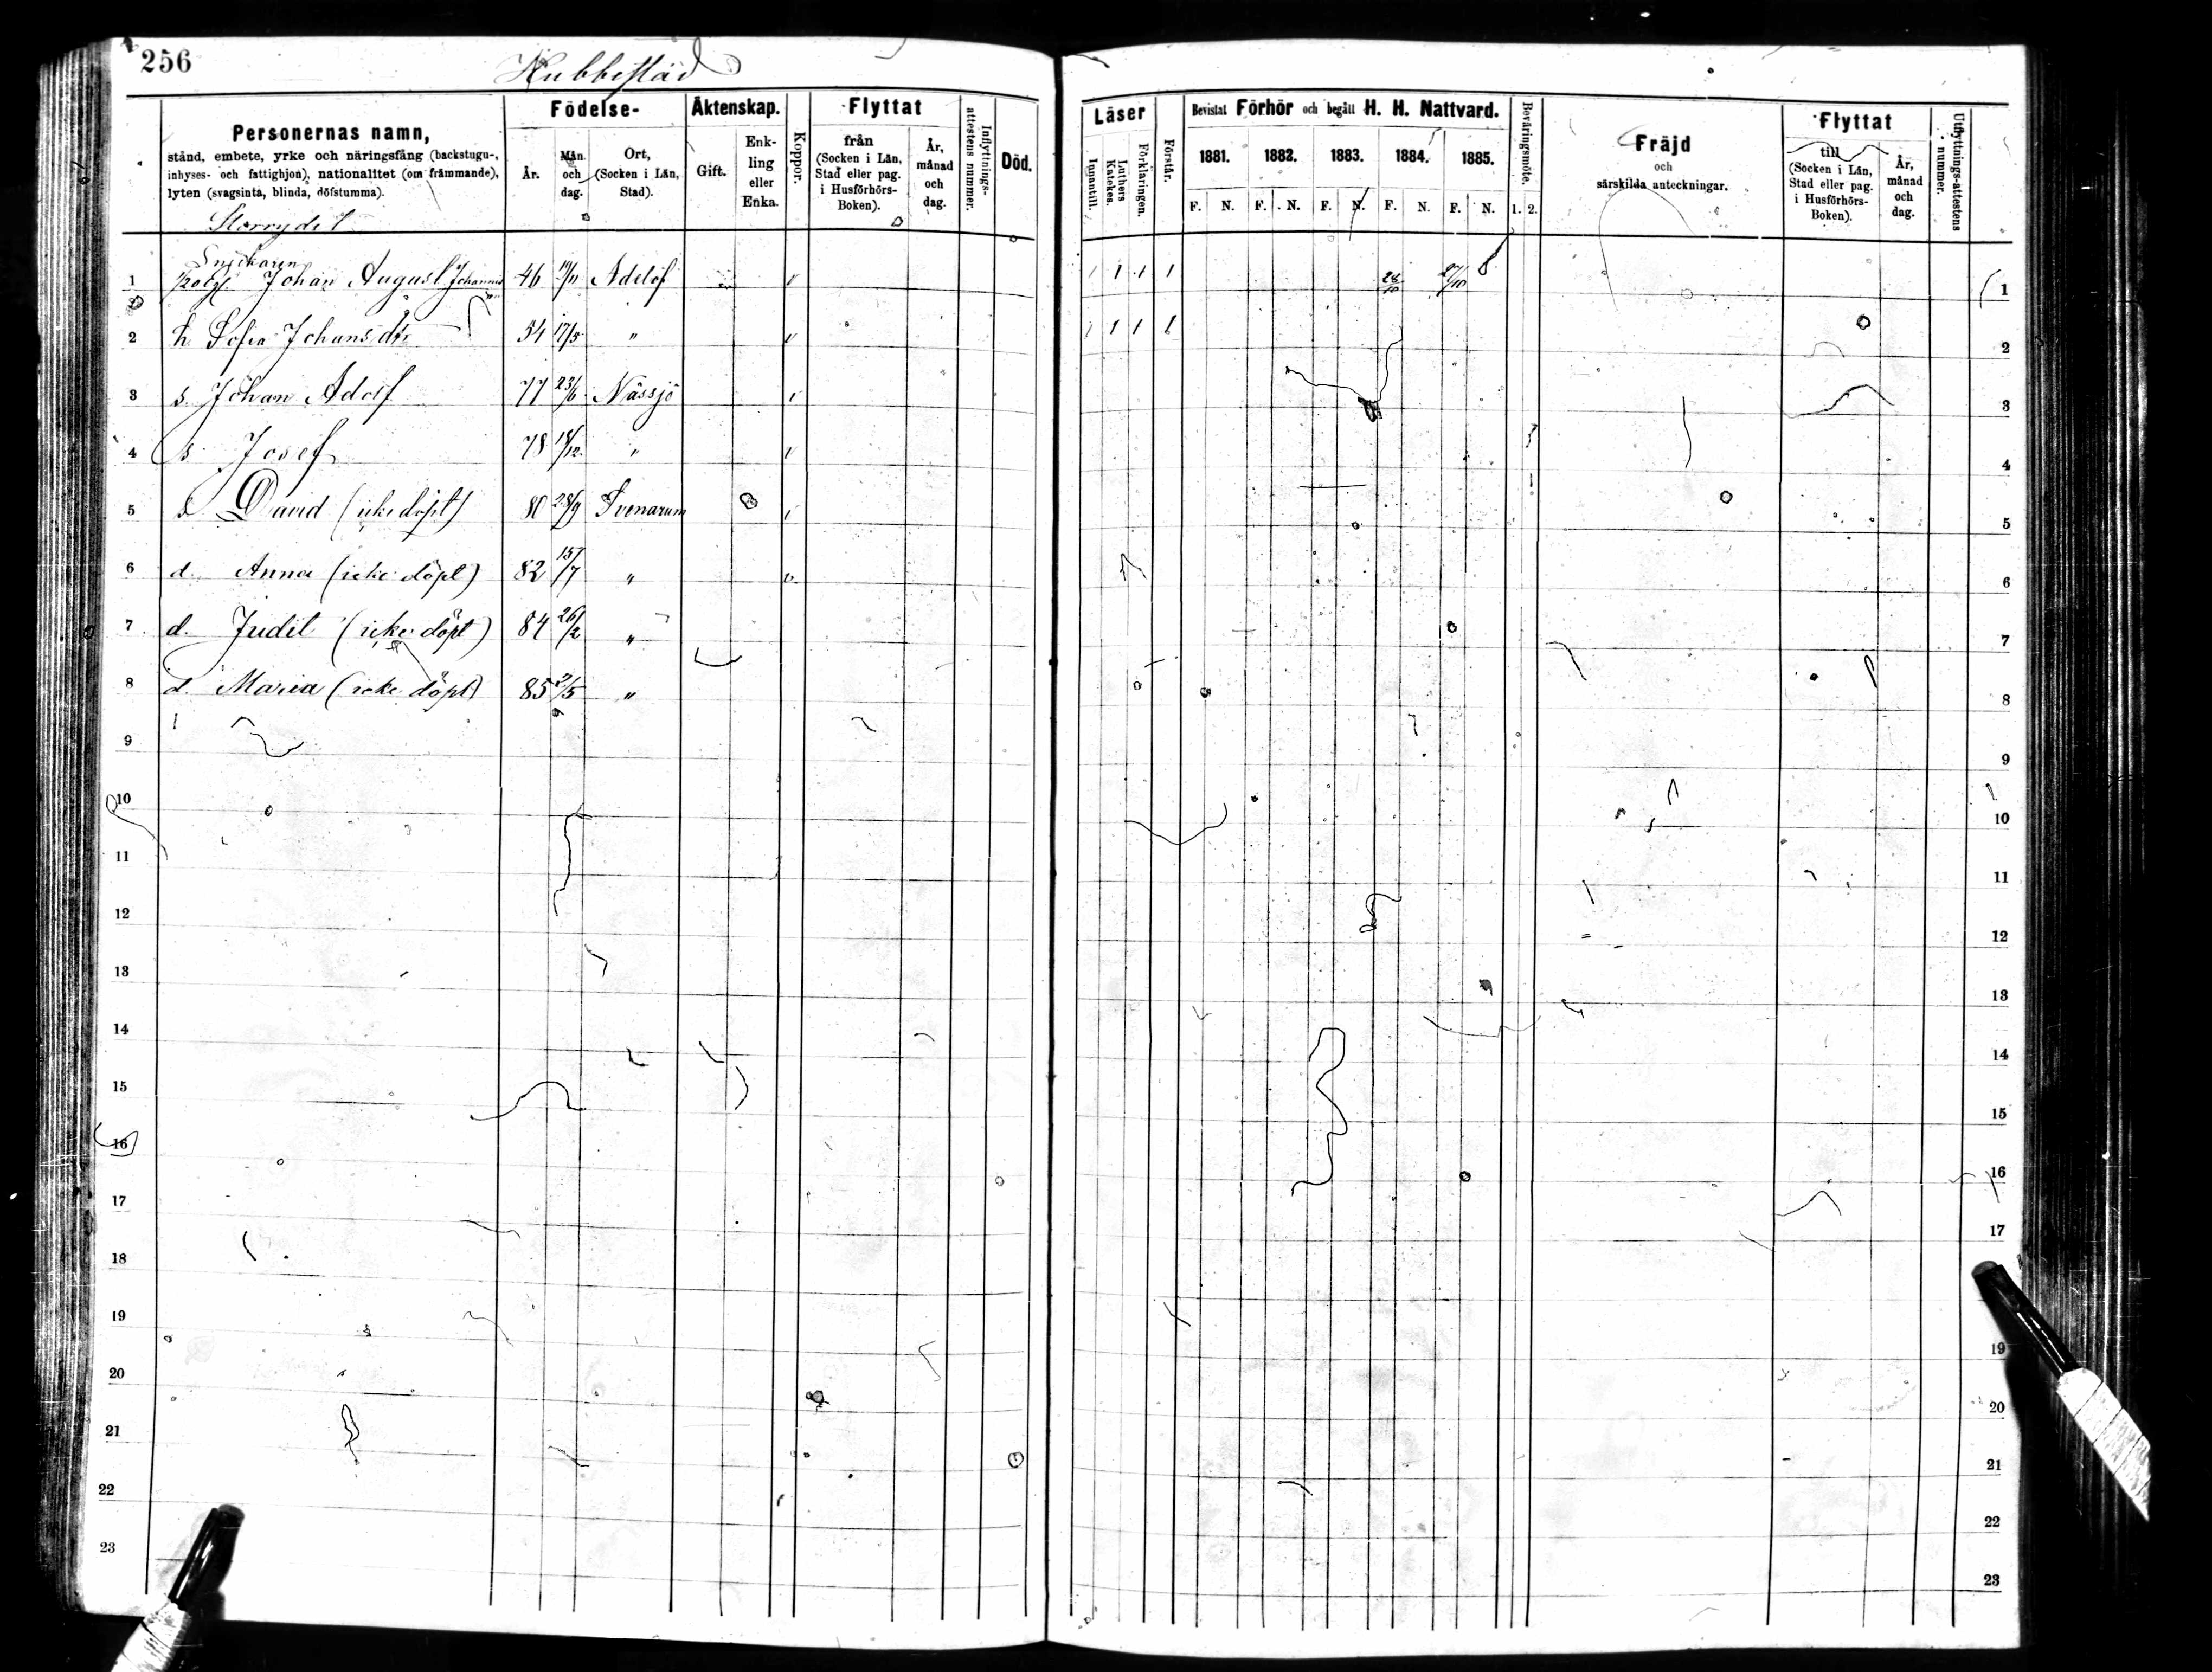 256
Hubbestad
Personernas namn,
stånd, embete, yrke och näringsfång (backstugu-,
inhyses- och fattighjon), nationalitet (om främmande),
lyten (svagsinta, blinda, döfstumma).
Födelse-
År.
Mån. och dag.
Ort, (Socken i Län, Stad).
Äktenskap.
Gift.
Enk- ling eller Enka.
Koppor.
Flyttat
från (Socken i Län, Stad eller pag. i Husförhörs- Boken).
År, månad och dag.
Inflyttnings- attestens nummer.
Död.
Läser
Innantill.
Luthers Katekes.
Förklaringen.
Förstår.
Bevistat Förhör och begått H. H. Nattvard.
1881. 1882. 1883. 1884. 1885.
F. N. F. N. F. N. F. N. F. N.
Beväringsmöte.
1. 2.
Fräjd
och
särskilda anteckningar.
Flyttat
till (Socken i Län, Stad eller pag. i Husförhörs- Boken).
År, månad och dag.
Utflyttnings-attestens nummer.
Storrydet
Snickaren
1 Johan August Johannis son 46 19/11 Adelöf 1 1 1 1 28/10 27/10 1
2 h. Sofia Johansdtr 54 17/5 " 1 1 1 1 2
3 s. Johan Adolf 77 23/6 Nässjö 3
4 s. Josef 78 18/12 " 4
5 s David (icke döpt) 80 28/9 Svenarum 5
6 d. Anna (icke döpt) 82 15/7 " 6
7 d. Judit (icke döpt) 84 26/2 " 7
8 d. Maria (icke döpt) 85 2/5 " 8
9 9
10 10
11 11
12 12
13 13
14 14
15 15
16 16
17 17
18
19 19
20 20
21 21
22 22
23 23